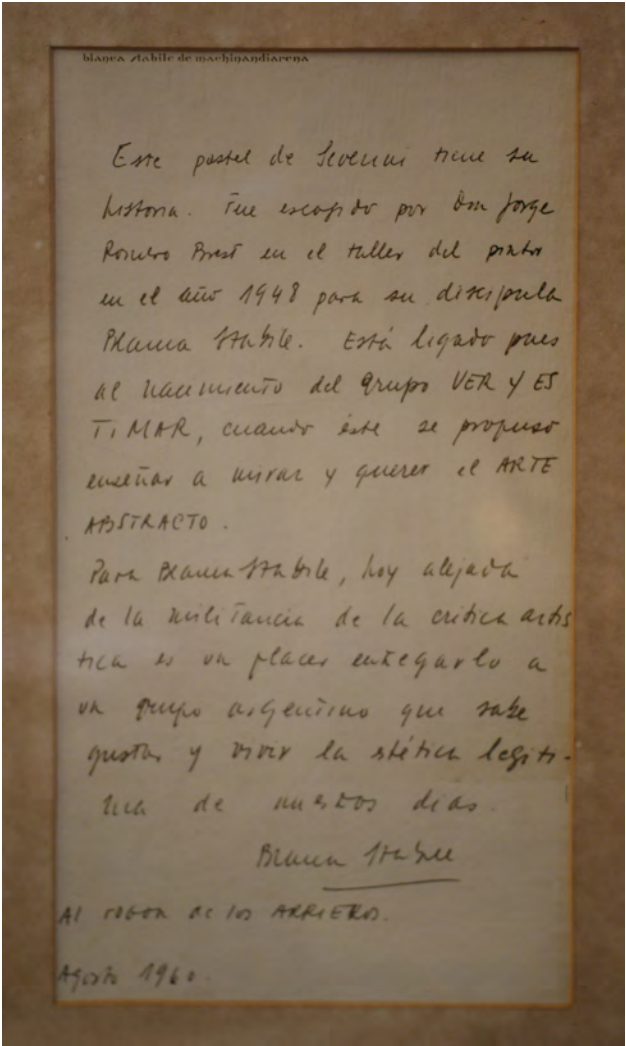 blanca stabile de machinandiarena
Este pastel de Severini tiene su
historia. Fue escogido por Don Jorge
Romero Brest en el taller del pintor
en el año 1948 para su discípula
Blanca Stabile. Está ligado pues
al nacimiento del grupo VER Y ES
TIMAR, cuando éste se propuso
enseñar a mirar y querer el ARTE
ABSTRACTO.
Para Blanca Stabile, hoy alejada
de la militancia de la crítica artís
tica es un placer entregarlo a
un grupo argentino que sabe
gustar y vivir la stética legíti-
ma de nuestros días.
Blanca Stabile
Al de los ARRIEROS.
Agosto 1960.